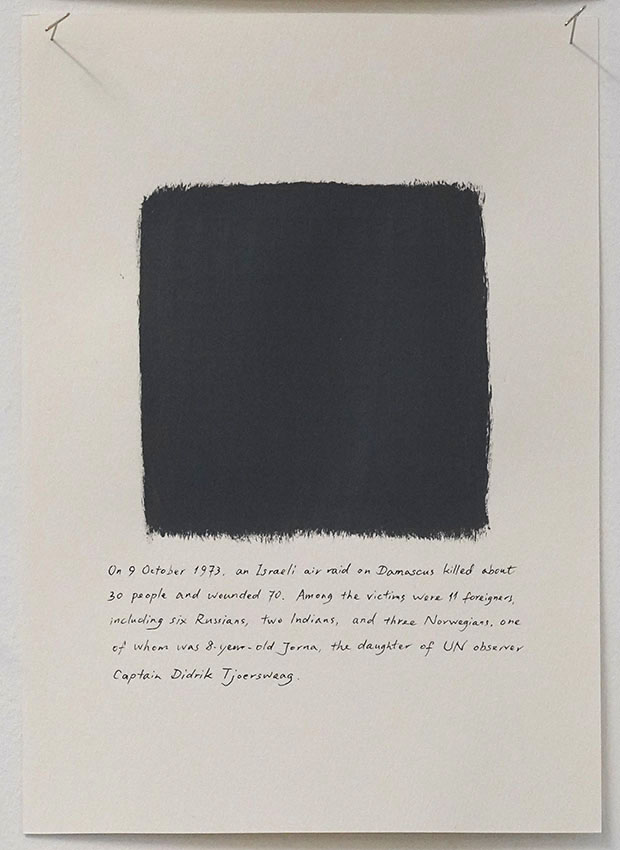 On 9 October 1973, an Israeli air raid on Damascus killed about
30 people and wounded 70. Among the victims were 11 foreigners,
including six Russians, two Indians, and three Norwegians, one
of whom was 8-year-old Jorna, the daughter of UN observer
Captain Didrik Tjoerswaag.